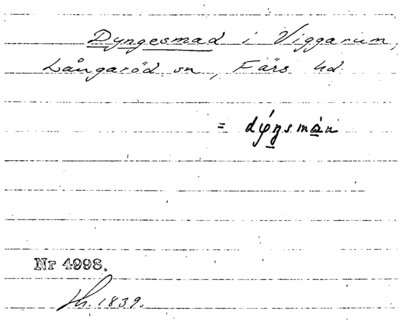 Dyngesmad i Viggarum,
Långaröd sn, Färs hd.
= dýŋsmàn
Nr 4998.
Th. 1839.